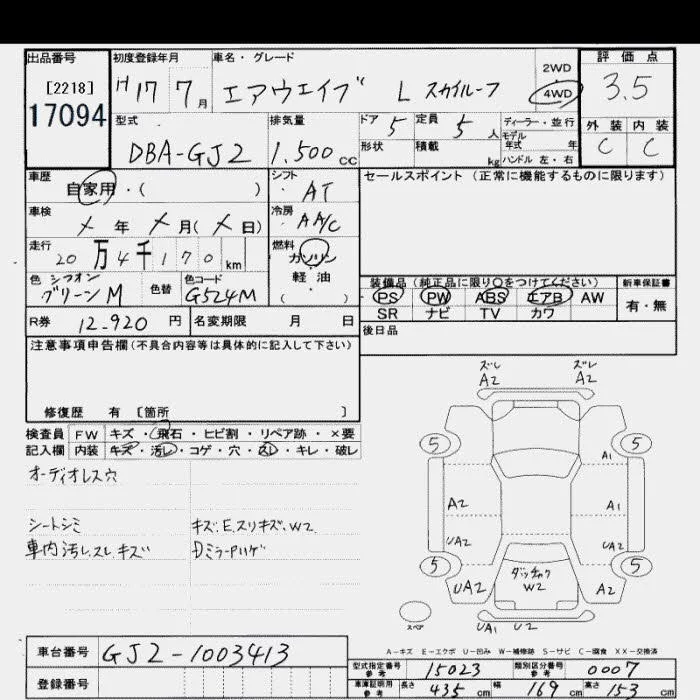 出品番号
[2218]
17094
初度登録年月
H17 7月
車名・グレード
エアウエイブ L スカイルーフ
2WD
4WD
評価点
3.5
型式
DBA-GJ2
排気量
1.500 CC
ドア 5
定員 5人
形状
積載 kg
ディーラー・並行
モデル年式 年
ハンドル 左・右
外装 内装
C C
車歴
自家用・( )
シフト
AT
セールスポイント (正常に機能するものに限ります)
車検
メ年 メ月(メ日)
冷房
AA/C
走行
20万4千170km
燃料
ガソリン・軽油
( )
色 シフオン
グリーンM
色替
色コード
G524M
装備品(純正品に限り○をつけてください)
PS PW ABS エアB AW
SR ナビ TV カワ
新車保証書
有・無
R券 12,920円
名変期限 月 日
後日品
注意事項申告欄(不具合内容等は具体的に記入して下さい)
修復歴 有 [箇所 ]
検査員 FW キズ・飛石・ヒビ割・リペア跡・×要
記入欄 内装 キズ・汚レ・コゲ・穴・スレ・キレ・破レ
オーディオレス穴
シートシミ
車内汚レ.スレ.キズ
キズ.E.スリキズ.W2
Dミラーハゲ
ズレ ズレ
A2 A2
5 5
A1
A2 A1
UA2 UA2
5 5
UA2 A2
ダッチャク
W2
スペア
UA1 U2
A－キズ E－エクボ U－凹み W－補修跡 S－サビ C－腐食 XX－交換済
車台番号 GJ2-1003413
登録番号
型式指定番号 参考 15023
類別区分番号 参考 0007
車庫証明用 参考 長さ 435cm 幅 169cm 高さ 153cm